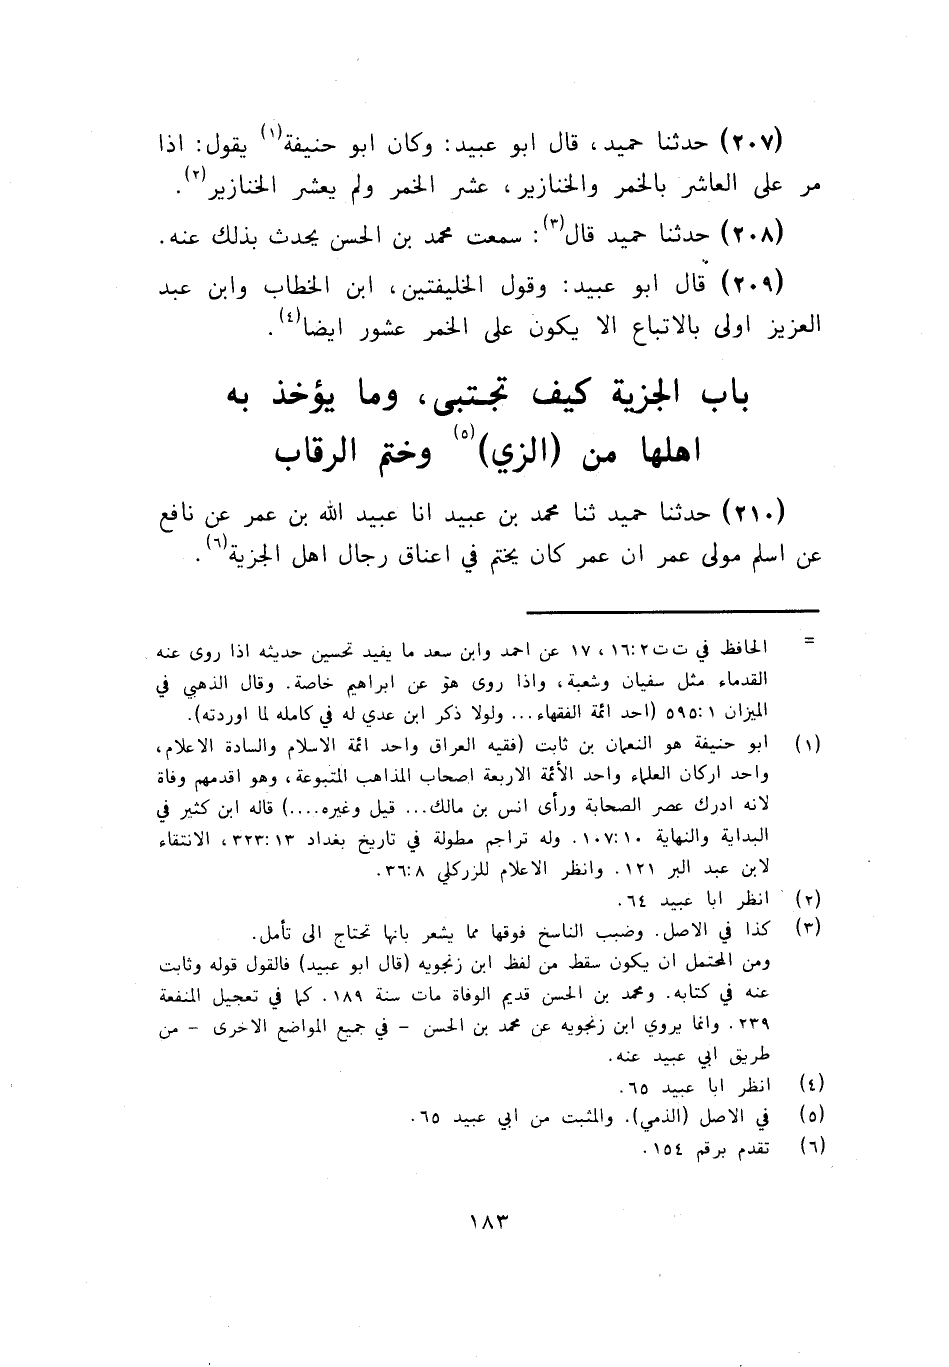 (٢٠٧) حدثنا حميد، قال ابو عبيد: وكان ابو حنيفة(١) يقول: اذا
مر على العاشر بالخمر والخنازير، عشر الخمر ولم يعشر الخنازير(٢).
(٢٠٨) حدثنا حميد قال(٣): سمعت محمد بن الحسن يحدث بذلك عنه.
(٢٠٩) قال ابو عبيد: وقول الخليفتين، ابن الخطاب وابن عبد
العزيز اولى بالاتباع الا يكون على الخمر عشور ايضا(٤).
باب الجزية كيف تجتبى، وما يؤخذ به
اهلها من (الزي)(٥) وختم الرقاب
(٢١٠) حدثنا حميد ثنا محمد بن عبيد انا عبيد الله بن عمر عن نافع
عن اسلم مولى عمر ان عمر كان يختم في اعناق رجال اهل الجزية(٦).
= الحافظ في ت ت ٢:١٦، ١٧ عن احمد وابن سعد ما يفيد تحسين حديثه اذا روى عنه
القدماء مثل سفيان وشعبة، واذا روى هو عن ابراهيم خاصة. وقال الذهبي في
الميزان ١:٥٩٥ (احد ائمة الفقهاء... ولولا ذكر ابن عدي له في كامله لما اوردته).
(١) ابو حنيفة هو النعمان بن ثابت (فقيه العراق واحد ائمة الاسلام والسادة الاعلام،
واحد اركان العلماء واحد الأئمة الاربعة اصحاب المذاهب المتبوعة، وهو اقدمهم وفاة
لانه ادرك عصر الصحابة ورأى انس بن مالك... قيل وغيره....) قاله ابن كثير في
البداية والنهاية ١٠:١٠٧. وله تراجم مطولة في تاريخ بغداد ١٣:٣٢٣، الانتقاء
لابن عبد البر ١٢١. وانظر الاعلام للزركلي ٨:٣٦.
(٢) انظر ابا عبيد ٦٤.
(٣) كذا في الاصل. وضبب الناسخ فوقها مما يشعر بانها تحتاج الى تأمل.
ومن المحتمل ان يكون سقط من لفظ ابن زنجويه (قال ابو عبيد) فالقول قوله وثابت
عنه في كتابه. ومحمد بن الحسن قديم الوفاة مات سنة ١٨٩. كما في تعجيل المنفعة
٢٣٩. وانما يروي ابن زنجويه عن محمد بن الحسن - في جميع المواضع الاخرى - من
طريق ابي عبيد عنه.
(٤) انظر ابا عبيد ٦٥.
(٥) في الاصل (الذمي). والمثبت من ابي عبيد ٦٥.
(٦) تقدم برقم ١٥٤.
١٨٣